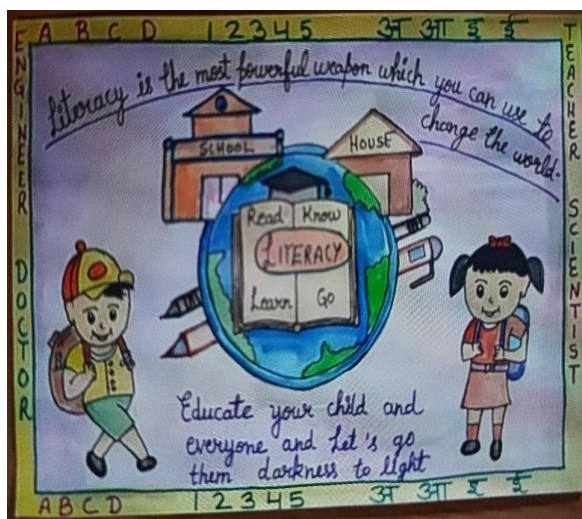 A B C D 1 2 3 4 5 अ आ इ ई
ENGINEER DOCTOR
TEACHER SCIENTIST
Literacy is the most powerful weapon which you can use to
change the world.
SCHOOL
HOUSE
Read Know
LITERACY
Learn Go
Educate your child and
everyone and Let's go
them darkness to light
A B C D 1 2 3 4 5 अ आ इ ई